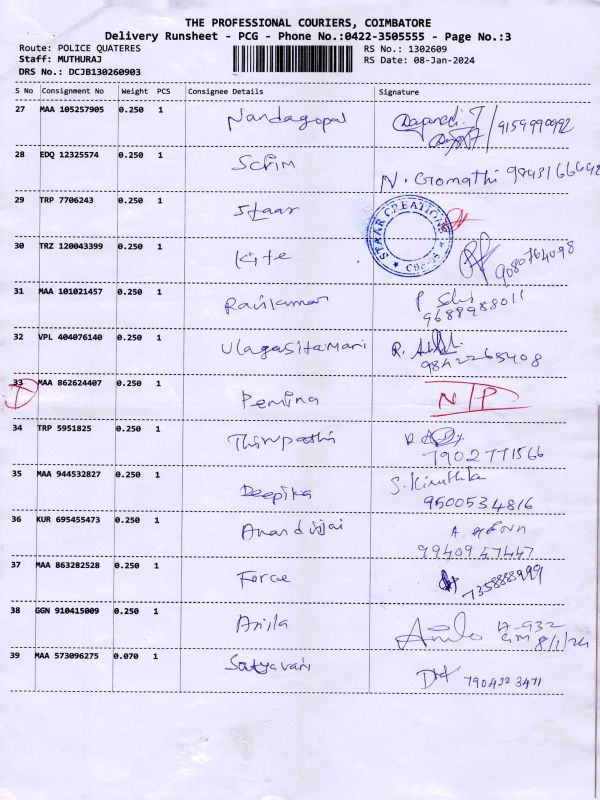 THE PROFESSIONAL COURIERS, COIMBATORE
Delivery Runsheet - PCG - Phone No.:0422-3505555 - Page No.:3
Route: POLICE QUATERES
Staff: MUTHURAJ
DRS No.: DCJB130260903
RS No.: 1302609
RS Date: 08-Jan-2024
S No Consignment No Weight PCS Consignee Details Signature
27 MAA 105257905 0.250 1 Nandagopal 9159990992
28 EDQ 12325574 0.250 1 N. Gomathi
29 TRP 7706243 0.250 1 Staar
STAAR CREATIONS
30 TRZ 120043399 0.250 1 Kite 9080764098
31 MAA 101021457 0.250 1 Ravikumar 9689988011
32 VPL 404076140 0.250 1 Ulagasitamani R. 9842265408
33 MAA 862624407 0.250 1 Pemina N/P
34 TRP 5951825 0.250 1 Thirupathi 7902771566
35 MAA 944532827 0.250 1 Deepika S. Kiruthika
9500534816
36 KUR 695455473 0.250 1 Anand vijai A.
9940947447
37 MAA 863282528 0.250 1 Force 7358888999
38 GGN 910415009 0.250 1 Anila A-932
8/1/24
39 MAA 573096275 0.070 1 Satyavani 7904223471